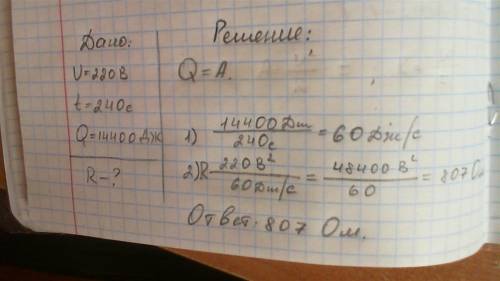 Дано:
U=220В
t=240с
Q=14400ДЖ
R-?
Решение:
Q=A.
1) 14400Дж/240с = 60Дж/с
2)R 220В²/60Дж/с = 48400В²/60 = 807 Ом
Ответ: 807 Ом.